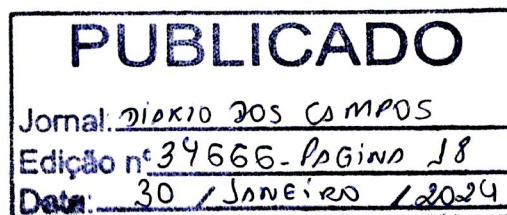 PUBLICADO
Jornal: DIÁRIO DOS CAMPOS
Edição nº 34666 - PÁGINA 18
Data: 30 / JANEIRO / 2024